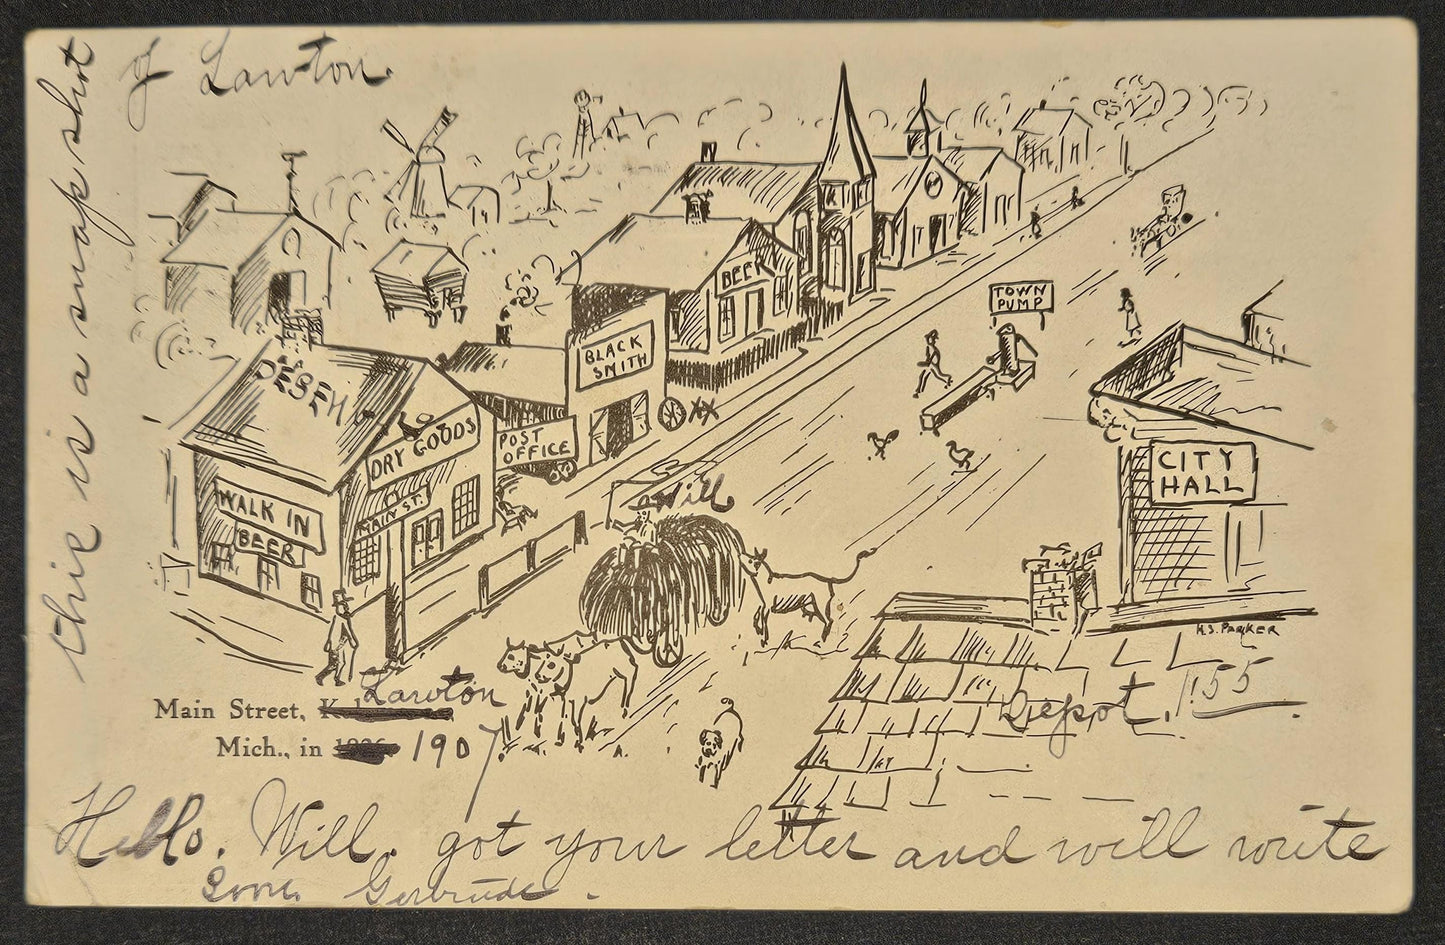 this is a snap shot
of Lawton.
BEER
TOWN
PUMP
BLACK
SMITH
DRY GOODS
POST
OFFICE
CITY
HALL
WALK IN
BEER
MAIN ST.
Will
H.S. PARKER
Lawton
Main Street,
Mich., in 1907
Depot. 1.55
Hello. Will. got your letter and will write
Soon. Gertrude.